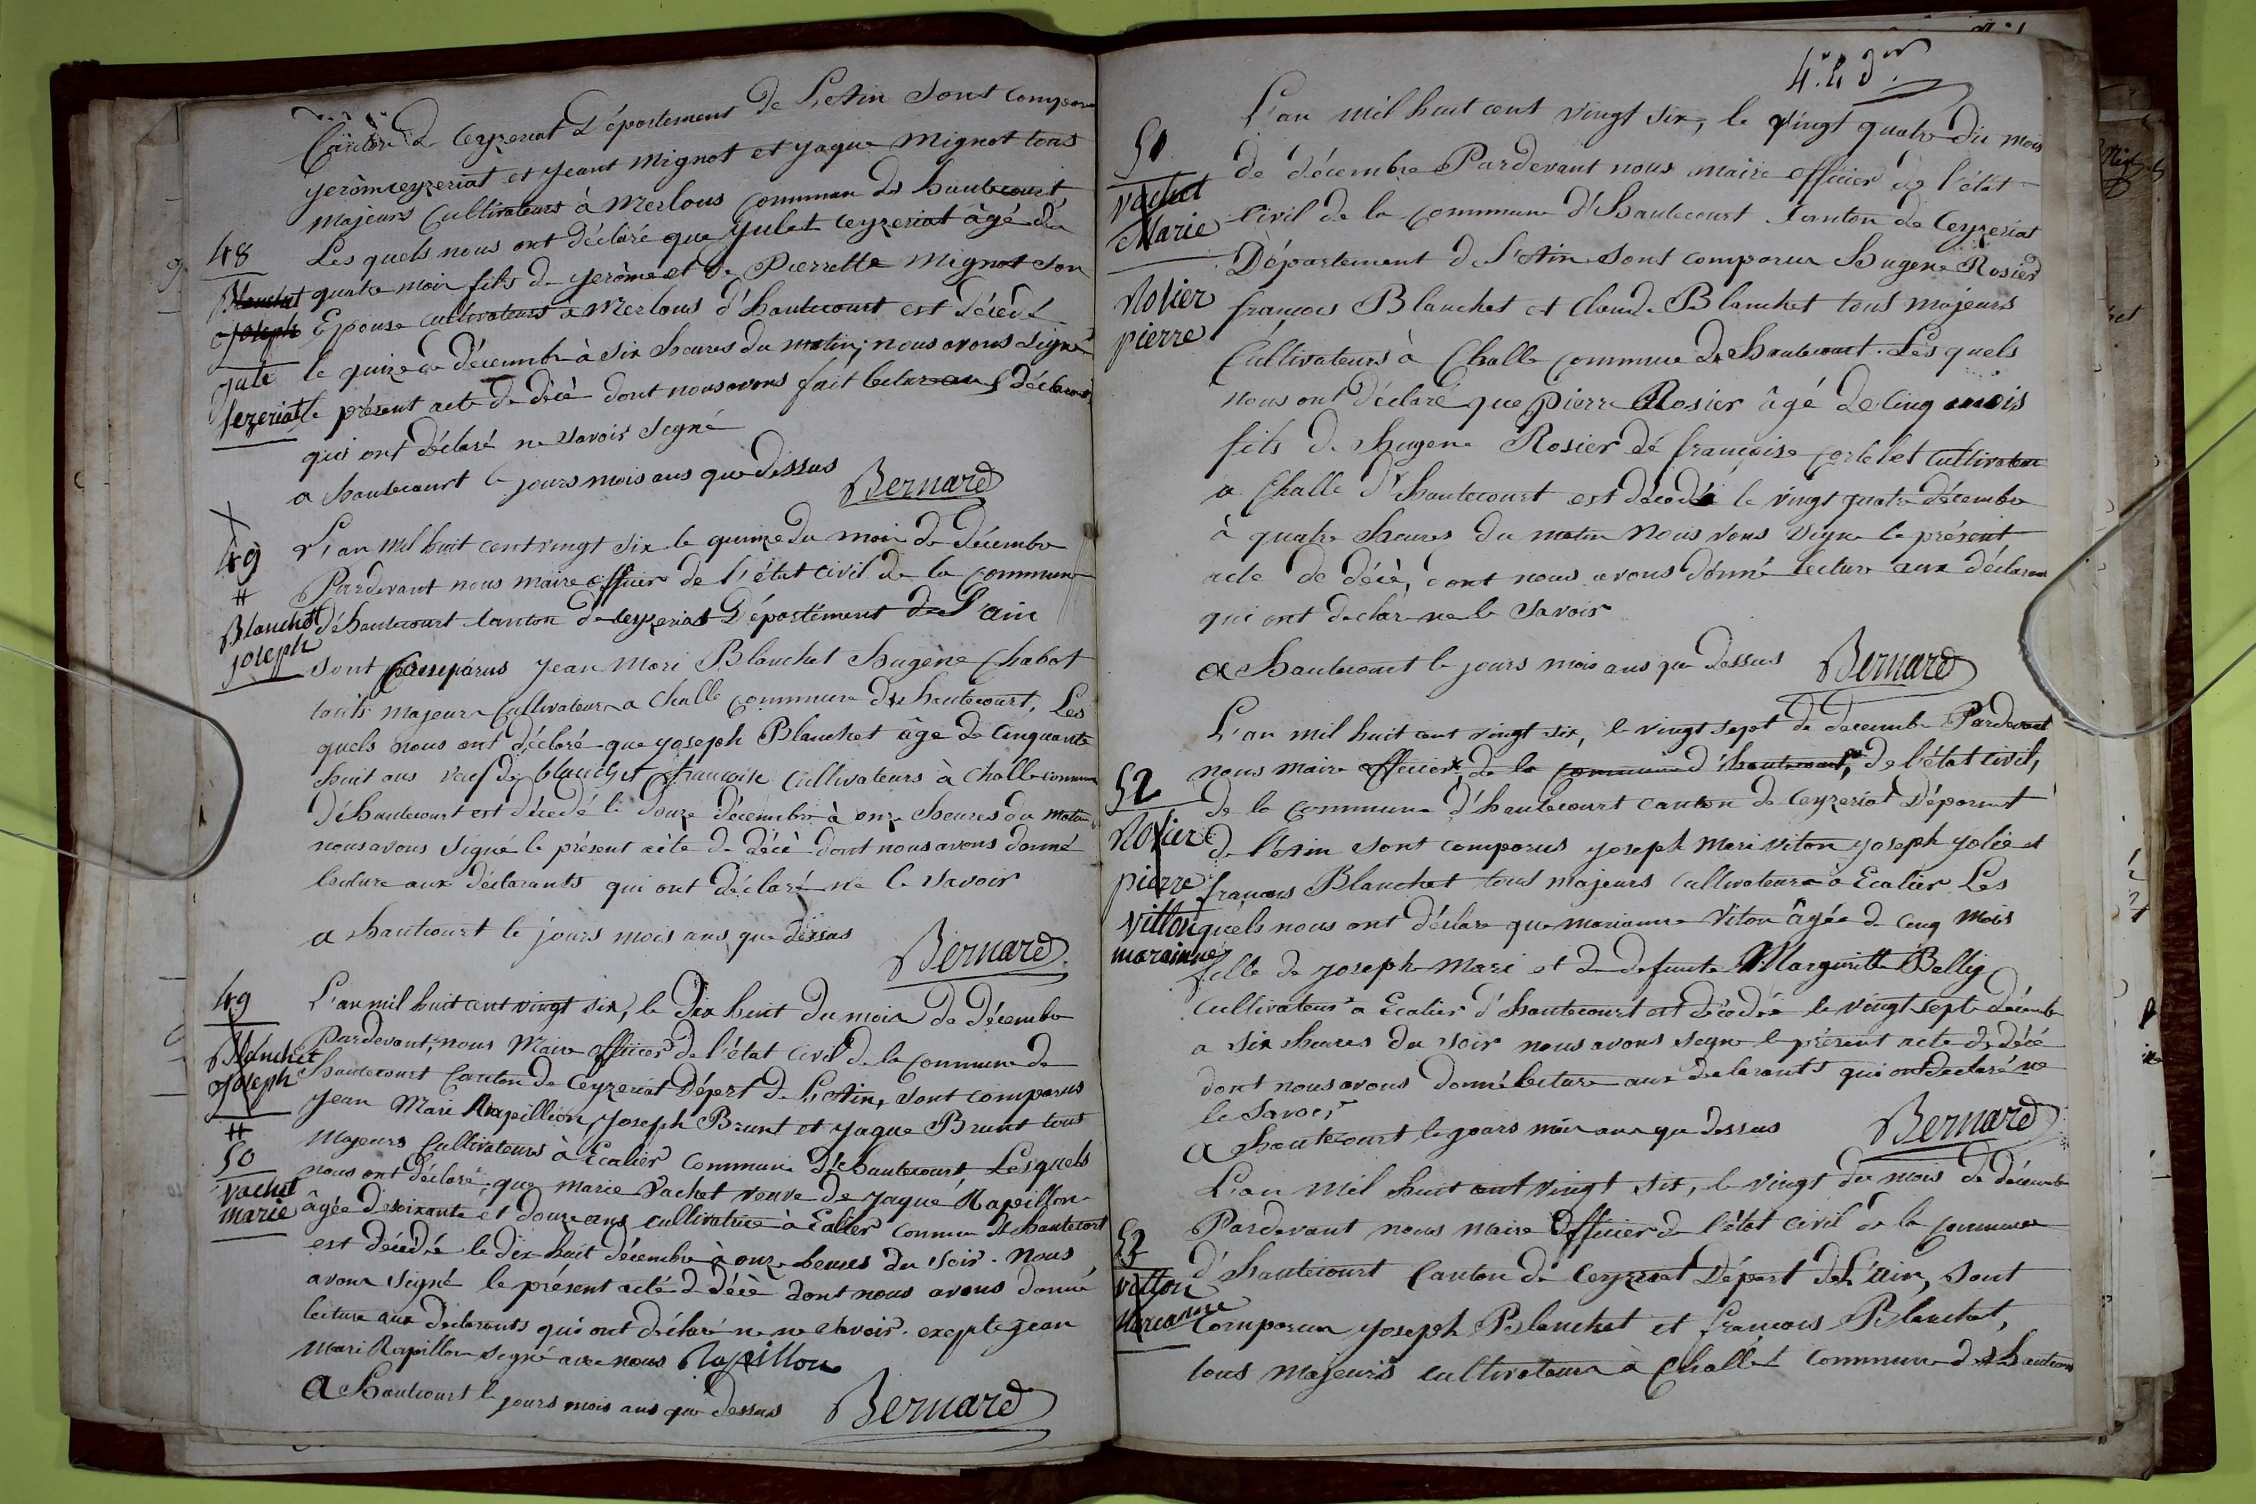 Canton de Ceyzeriat Département de L'Ain sont compar
yerôm ceyzeriat et yeant mignot et yaque mignot tous
majeurs Cultivateurs à merlous commun de hautecourt
48
Les quels nous ont déclaré que yulet ceyzeriat âgé de
Blanchet
quatre mois fils de yerôme et de Pierrette mignot son
joseph
Epouse cultivateurs a merlous d'hautecourt est décédé
julé
le quinze de décembre à six heures du matin; nous avons signé
sezeriat
le présent acte de décè dont nous avons fait lecture aux déclarant
qui ont déclaré ne savoir segné
a hautecourt le jours mois ans que dessus
Bernard
49
L'an mil huit cent vingt six le quinze du mois de décembre
Pardevant nous maire officier de l'état civil de la commune
Blanchet
d'éhautecourt canton de ceyzeriat Département de L'ain
joseph
sont comparus yean mari Blanchet hugène Chabot
touts majeurs cultivateurs a challe commune de hautecourt, Les
quels nous ont déclaré que yoseph Blanchet âge de cinquante
huit ans veuf de blanchet francoise cultivateurs à challe commun
d'éhautecourt est décedé le douze décembre à onze heures du matin
nous avons signé le présent acte de décè dont nous avons donné
lecture aux déclarants qui ont déclaré ne le savoir
a hautcourt le jours mois ans que dessus
Bernard
49
L'an mil huit cent vingt six, le dix huit du mois de décembre
Blanchet
Pardevant, nous Maire officier de l'état civil de la commune de
joseph
hautecourt canton de Ceyzeriat Dépert de L'Ain, sont comparus
yean Mari Rapillion, yoseph Brunt et yaque Brunt tous
50
majeurs cultivateurs à Ecalier commune de hautecourt, Lesquels
vachet
nous ont déclaré, que marie vachet veuve de yaque Rapillon
marie
âgée de soixante et douze ans cultivatrice à Ealier commun de hautecort
est décédée le dix huit décembre à onze heures du soir. nous
avons signé le présent acté de décè dont nous avons donné
lecture aux déclarants qui ont déclaré ne ne savoir. exepte yean
mari Rapillon segné avec nous Rapillon
a hautcourt le jours mois ans que dessus
Bernard
L'an mil huit cent vingt six, le vingt quatre du mois
51
de décembre Pardevant nous maire officier de l'état
vachet
Marie
civil de la commune d'hautecourt canton de Ceyzeriat
Département de L'Ain sont comparus hugene Rosier
Rosier
françois Blanchet et claude Blanchet tous majeurs
pierre
Cultivateurs à Challe commune de hautecourt. Lesquels
nous ont déclaré que pierre Rosier âgé de cinq mois
fils de hugene Rosier dé françoise cortelet cultivateur
a Challe d'hautecourt est décédé le vingt quatre décembre
à quatre heures du matin nous vons signe le présent
acte de décè, dont nous avons donné lecture aux déclarant
qui ont déclar ne le savoir
a hautecourt le jours mois ans que dessus
Bernard
L'an mil huit cent vingt six, le vingt sept de decembre Pardevant
nous maire officier de la commune d'hautecourt, de l'état civil,
52
de la commune d'hautecourt canton de Ceyzeriat Déparment
Rosier
de l'Ain sont comparus yoseph mari viton yoseph yolie et
pierre
françois Blanchet tous majeurs cultivateurs a Ecalier Les
villon
quels nous ont déclare que marianne viton âgée de cinq mois
maraianne
fille de yoseph mari et de defunte Margueritte Belley
cultivateur a Ecalier d'hautecourt est décédée le vingt sept décembre
a six heures du soir nous avons segne le présent acte de décé
dont nous avons donné lecture aux declarants qui ont declaré ne
le savoir
a hautecourt le jours mois ans que dessus
Bernard
L'an mil huit cent vingt six, le vingt du mois de décembre
Pardevant nous maire officier de l'état civil de la commune
53
d'hautecourt Canton de Ceyzeriat Dépert de L'ain, sont
villon
marianne
comparus yoseph Blanchet et françois Blanchet,
tous majeurs cultivateurs à Challet commune de hautecour